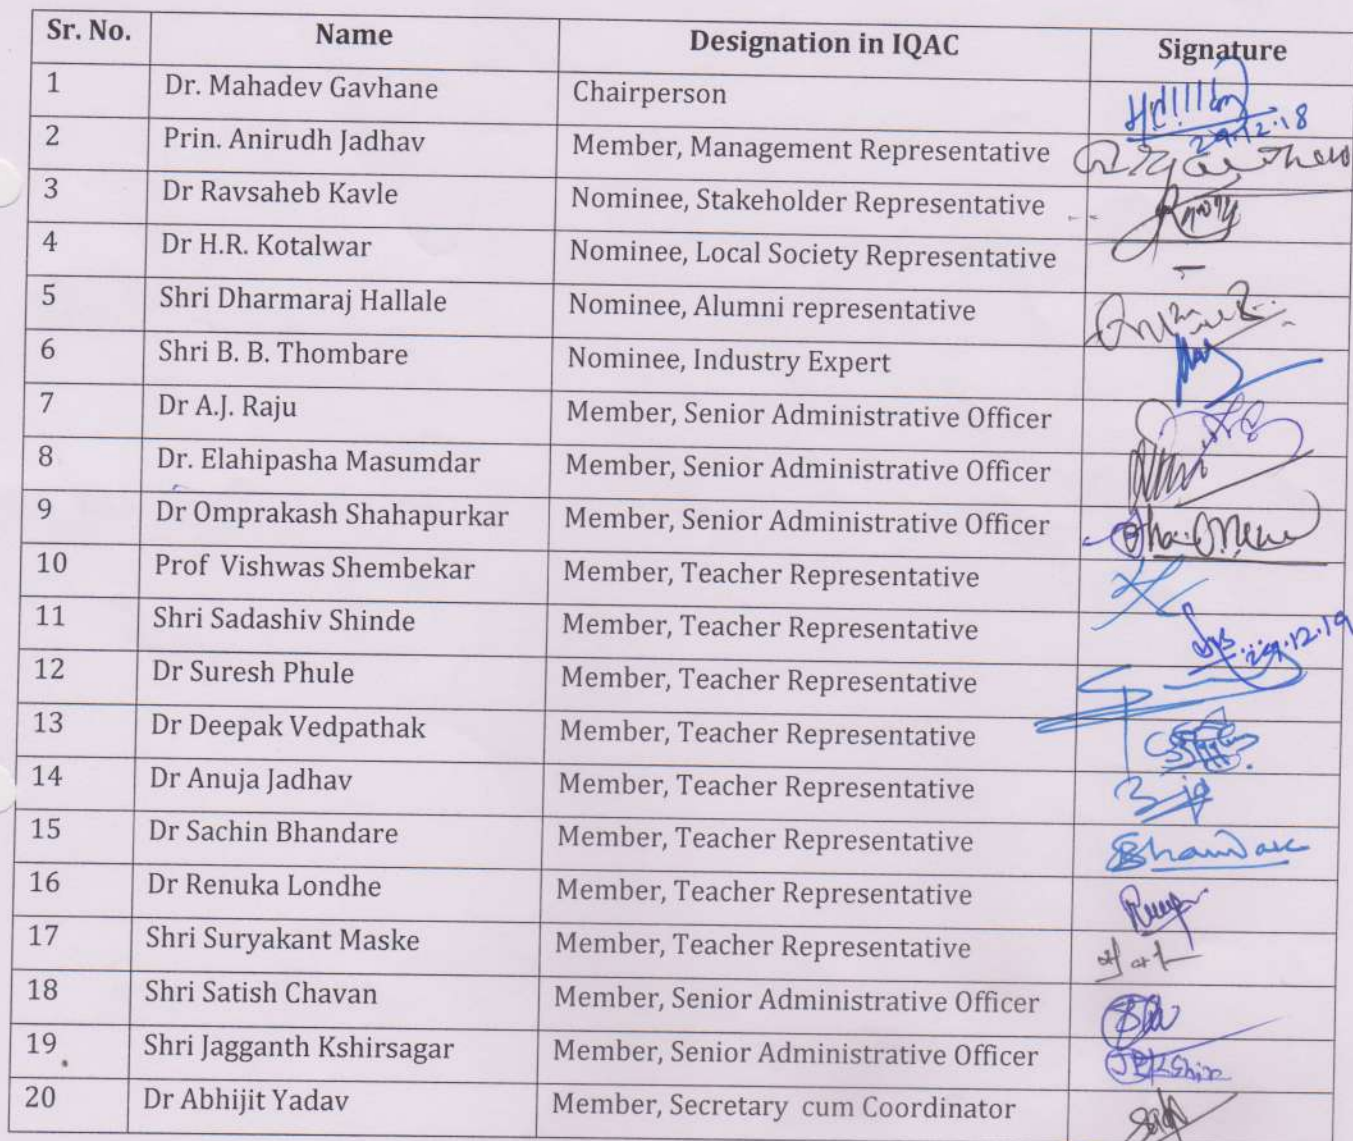 Sr. No. Name Designation in IQAC Signature
1 Dr. Mahadev Gavhane Chairperson
29.12.18
2 Prin. Anirudh Jadhav Member, Management Representative
3 Dr Ravsaheb Kavle Nominee, Stakeholder Representative
4 Dr H.R. Kotalwar Nominee, Local Society Representative -
5 Shri Dharmaraj Hallale Nominee, Alumni representative
6 Shri B. B. Thombare Nominee, Industry Expert
7 Dr A.J. Raju Member, Senior Administrative Officer
8 Dr. Elahipasha Masumdar Member, Senior Administrative Officer
9 Dr Omprakash Shahapurkar Member, Senior Administrative Officer
10 Prof Vishwas Shembekar Member, Teacher Representative
11 Shri Sadashiv Shinde Member, Teacher Representative
29.12.19
12 Dr Suresh Phule Member, Teacher Representative
13 Dr Deepak Vedpathak Member, Teacher Representative
14 Dr Anuja Jadhav Member, Teacher Representative
15 Dr Sachin Bhandare Member, Teacher Representative SBhandare
16 Dr Renuka Londhe Member, Teacher Representative
17 Shri Suryakant Maske Member, Teacher Representative
18 Shri Satish Chavan Member, Senior Administrative Officer
19 Shri Jagganth Kshirsagar Member, Senior Administrative Officer
20 Dr Abhijit Yadav Member, Secretary cum Coordinator